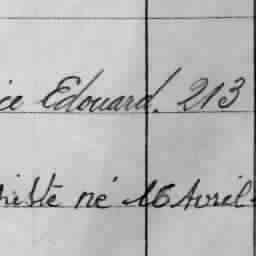 ice Edouard. 213
né 16 Avril